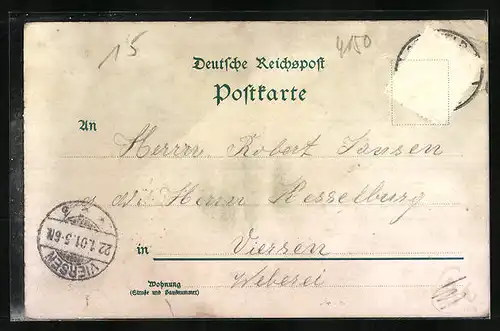 15
4150
Deutsche Reichspost
Postkarte
An
Herrn Robert Jansen
Kesselburg
in Viersen
Weberei
Wohnung
(Straße und Hausnummer)
VIERSEN
22.1.01.5-6N.